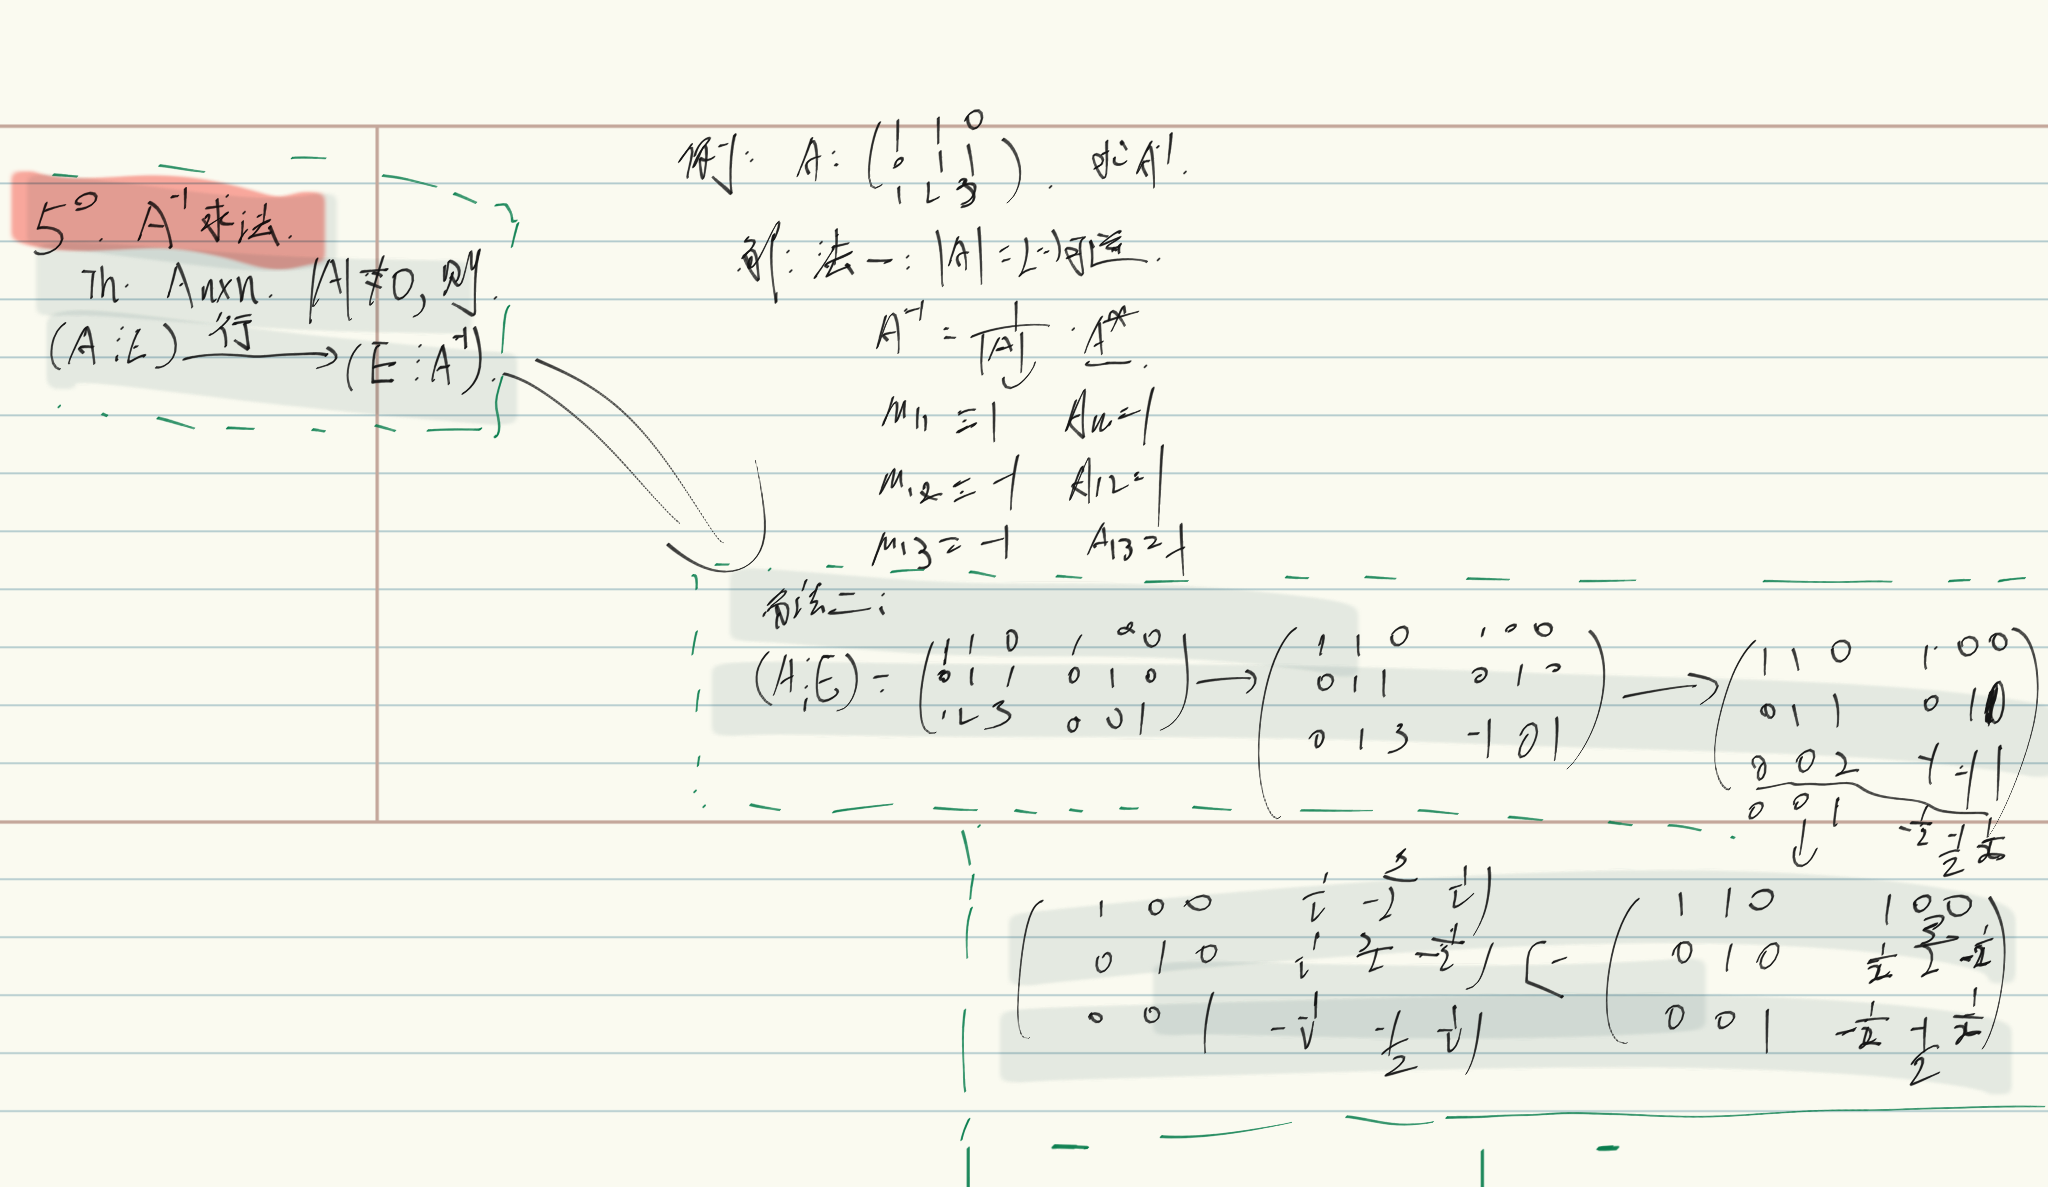 5°. A⁻¹求法.
Th. Anxn. |A|≠0, 则.
(A⋮E) 行→ (E⋮A⁻¹).
例: A: (1 1 0
0 1 1
1 2 3). 求A⁻¹.
解: 法一: |A|=2(…)可逆.
A⁻¹ = 1/|A| · A*.
M11 = 1 A11=1
M12 = -1 A12=1
M13 = -1 A13=-1
方法二:
(A⋮E) = (1 1 0 1 0 0
0 1 1 0 1 0
1 2 3 0 0 1)
→ (1 1 0 1 0 0
0 1 1 0 1 0
0 1 3 -1 0 1)
→ (1 1 0 1 0 0
0 1 1 0 1 0
0 0 2 -1 -1 1)
0 0 1 -1/2 -1/2 1/2
↓
(1 1 0 1 0 0
0 1 0 1/2 3/2 -1/2
0 0 1 -1/2 -1/2 1/2)
(1 0 0 1/2 -3/2 1/2
0 1 0 1/2 3/2 -1/2
0 0 1 -1/2 -1/2 1/2)